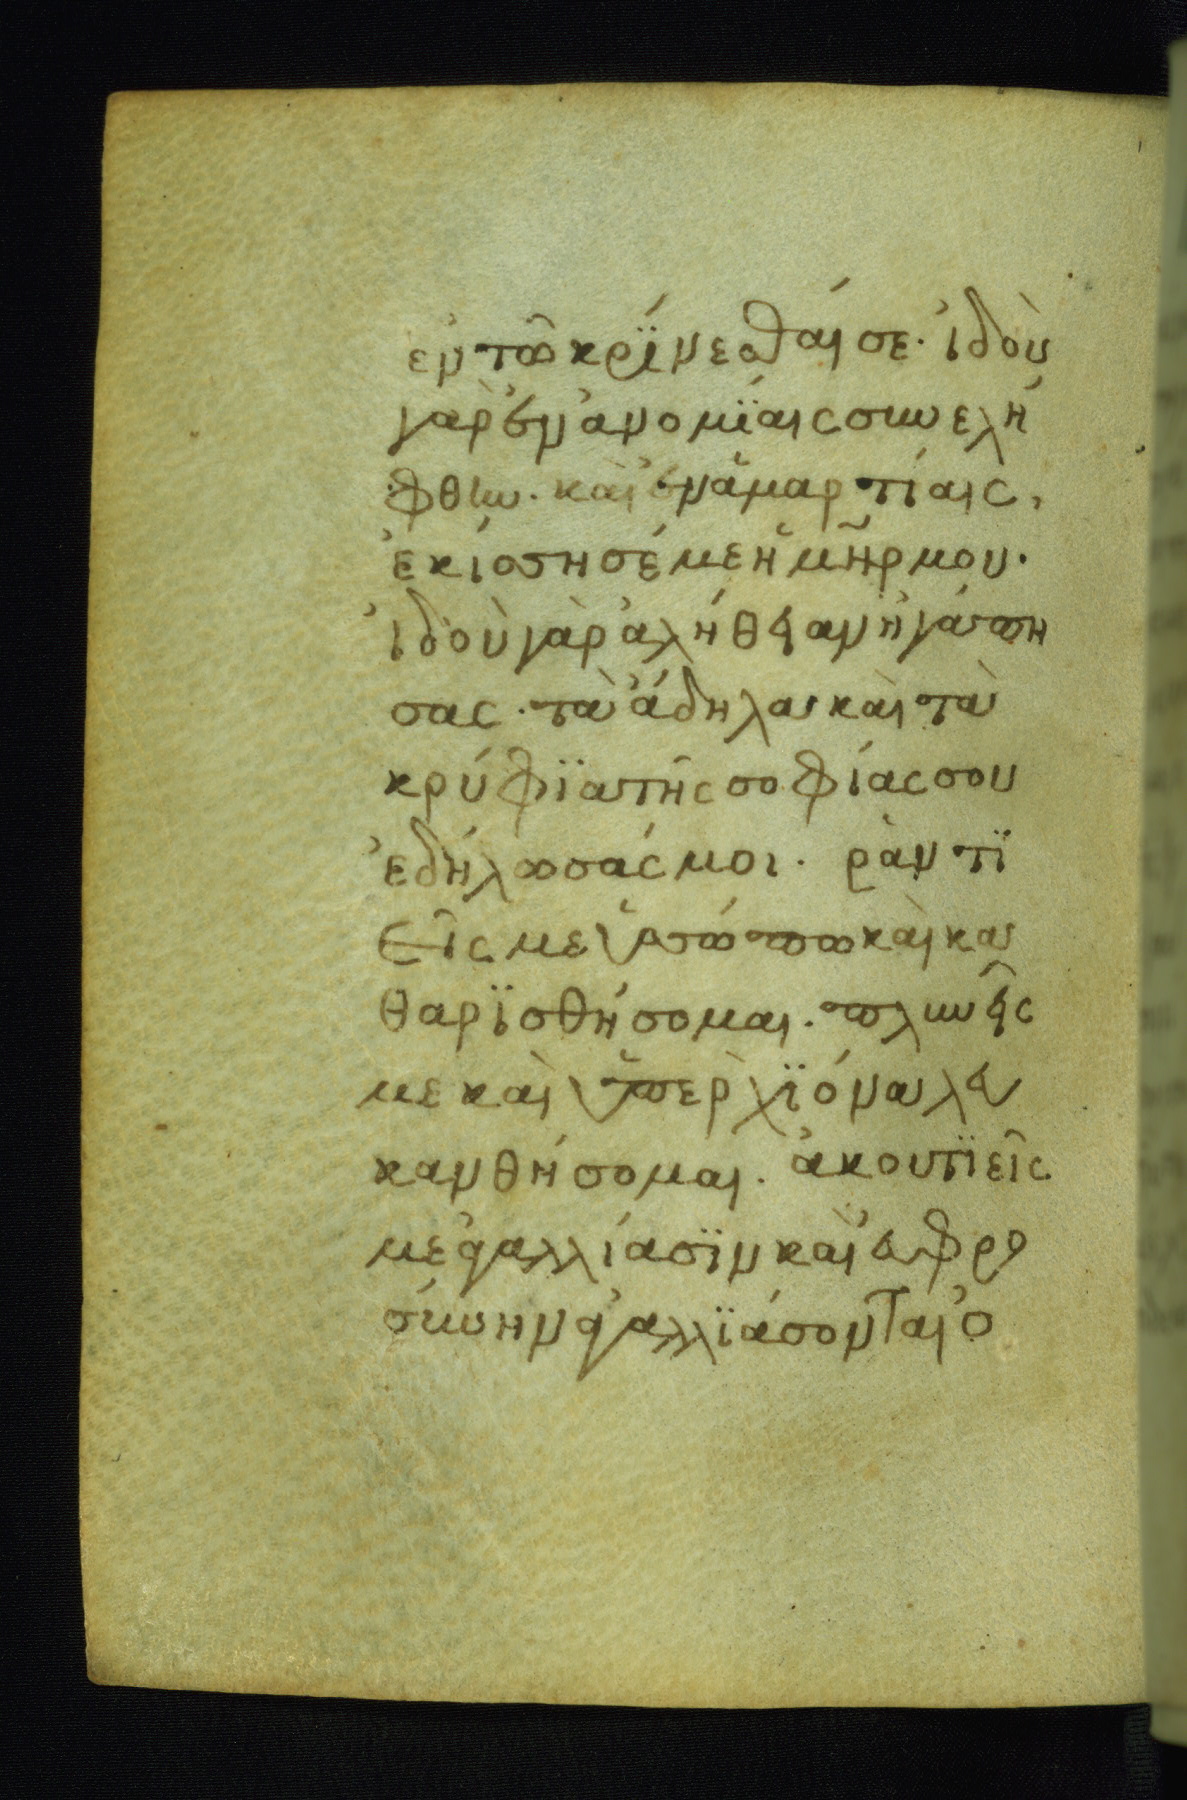 ἐν τῶ κρΐνεσθαί σε· ἰδοὺ
γὰρ ἐν ἀνομΐαις συνελή
φθην· καὶ ἐν ἁμαρτίαις,
ἐκίσσησέ με ἡ μ̅η̅ρ μου·
ἰδοὺ γὰρ ἀλήθειαν ἠγάπη
σας· τὰ ἄδηλα καὶ τὰ
κρύφϊα τῆς σοφίας σου
ἐδήλωσάς μοι· ραντϊ
εῖς με ὑσσώπω καὶ κα
θαρϊσθήσομαι· πλυνεῖς
με καὶ ὑπὲρ χϊόνα λευ
κανθήσομαι. ἀκουτϊεῖς
με ἀγαλλίασϊν καὶ εὐφρο
σύνην ἀγαλλϊάσονται ὀ